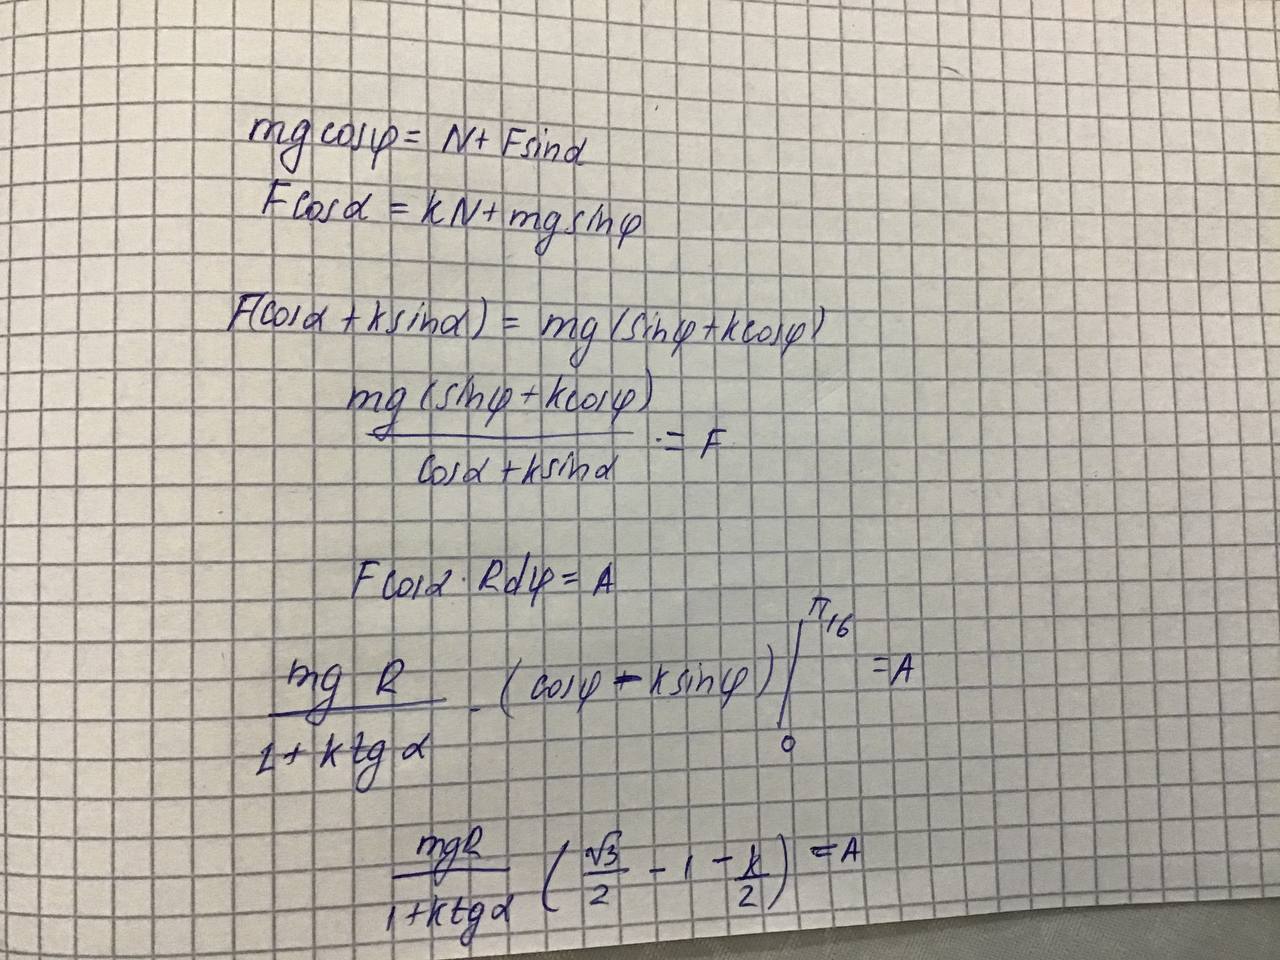 mg cosφ = N + Fsinα
Fcosα = kN + mg sinφ
F(cosα + ksinα) = mg (sinφ + kcosφ)
mg (sinφ + kcosφ)
cosα + ksinα
= F
Fcosα · Rdφ = A
mg R
1 + k tg α
- (cosφ - ksinφ) |₀^π/16 = A
mgR
1 + ktgα
(√3/2 - 1 - k/2) = A